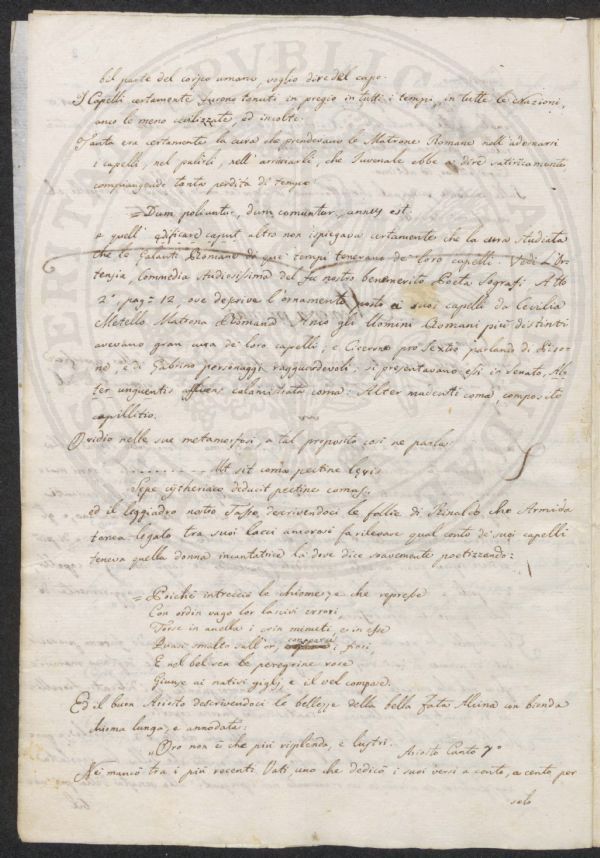 bil parte del corpo umano, voglio dire del capo.
I Capelli certamente furono tenuti in pregio in tutti i tempi, in tutte le Nazioni,
anco le meno civilizzate, ed incolte.
Tanta era certamente la cura che prendevano le Matrone Romane nell'adornarsi
i capelli, nel pulirli, nell'arricciarli, che Iuvenale ebbe a dire satiricamente
compiangendo tanta perdita di tempo
= Dum poliuntur, dum comuntur, annus est
e quell' edificare caput altro non ispiegava certamente che la cura studiata
che le Galanti Romane di que' tempi tenevano de' loro capelli. Vedi l'Or-
tensia, Commedia studiosissima del fu nostro benemerito Poeta Sografi Atto
2°, pag.ª 12, ove descrive l'ornamento posto a' suoi capelli da Cecilia
Metello Matrona Romana. Anco gli Uomini Romani più distinti
avevano gran cura de' loro capelli, e Cicerone pro Sextio parlando di Piso-
ne, e di Gabinio personaggi ragguardevoli, si presentavano essi in Senato, Al-
ter unguentis affluens calamistrata coma: Alter madenti coma, composito
capillitio.
Ovidio nelle sue metamorfosi, a tal proposito così ne parla:
Ut sit coma pectine levis
Sepe cÿtheriaco deducit pectine comas,
ed il leggiadro nostro Tasso descrivendoci le follie di Rinaldo, che Armida
tenea legato tra suoi lacci amorosi fa rilevare qual conto de' suoi capelli
teneva quella donna incantatrice la dove dice soavemente poetizzando:
= Poichè intrecciò le chiome, e che represse
Con ordin vago lor lascivi errori,
Torse in anella i crin minuti, e in esse
Quasi smalto sull'or, consparse i fiori,
E nel bel sen le peregrine rose
Giunse ai nativi giglj, e il vel compose.
Ed il buon Ariosto descrivendoci le bellezze della bella Fata Alcina con bionda
chioma lunga, e annodata:
"Oro non è che più risplenda, e lustri. Ariosto Canto 7°
Nè mancò tra i più recenti Vati uno che dedicò i suoi versi a cento, a cento per
solo